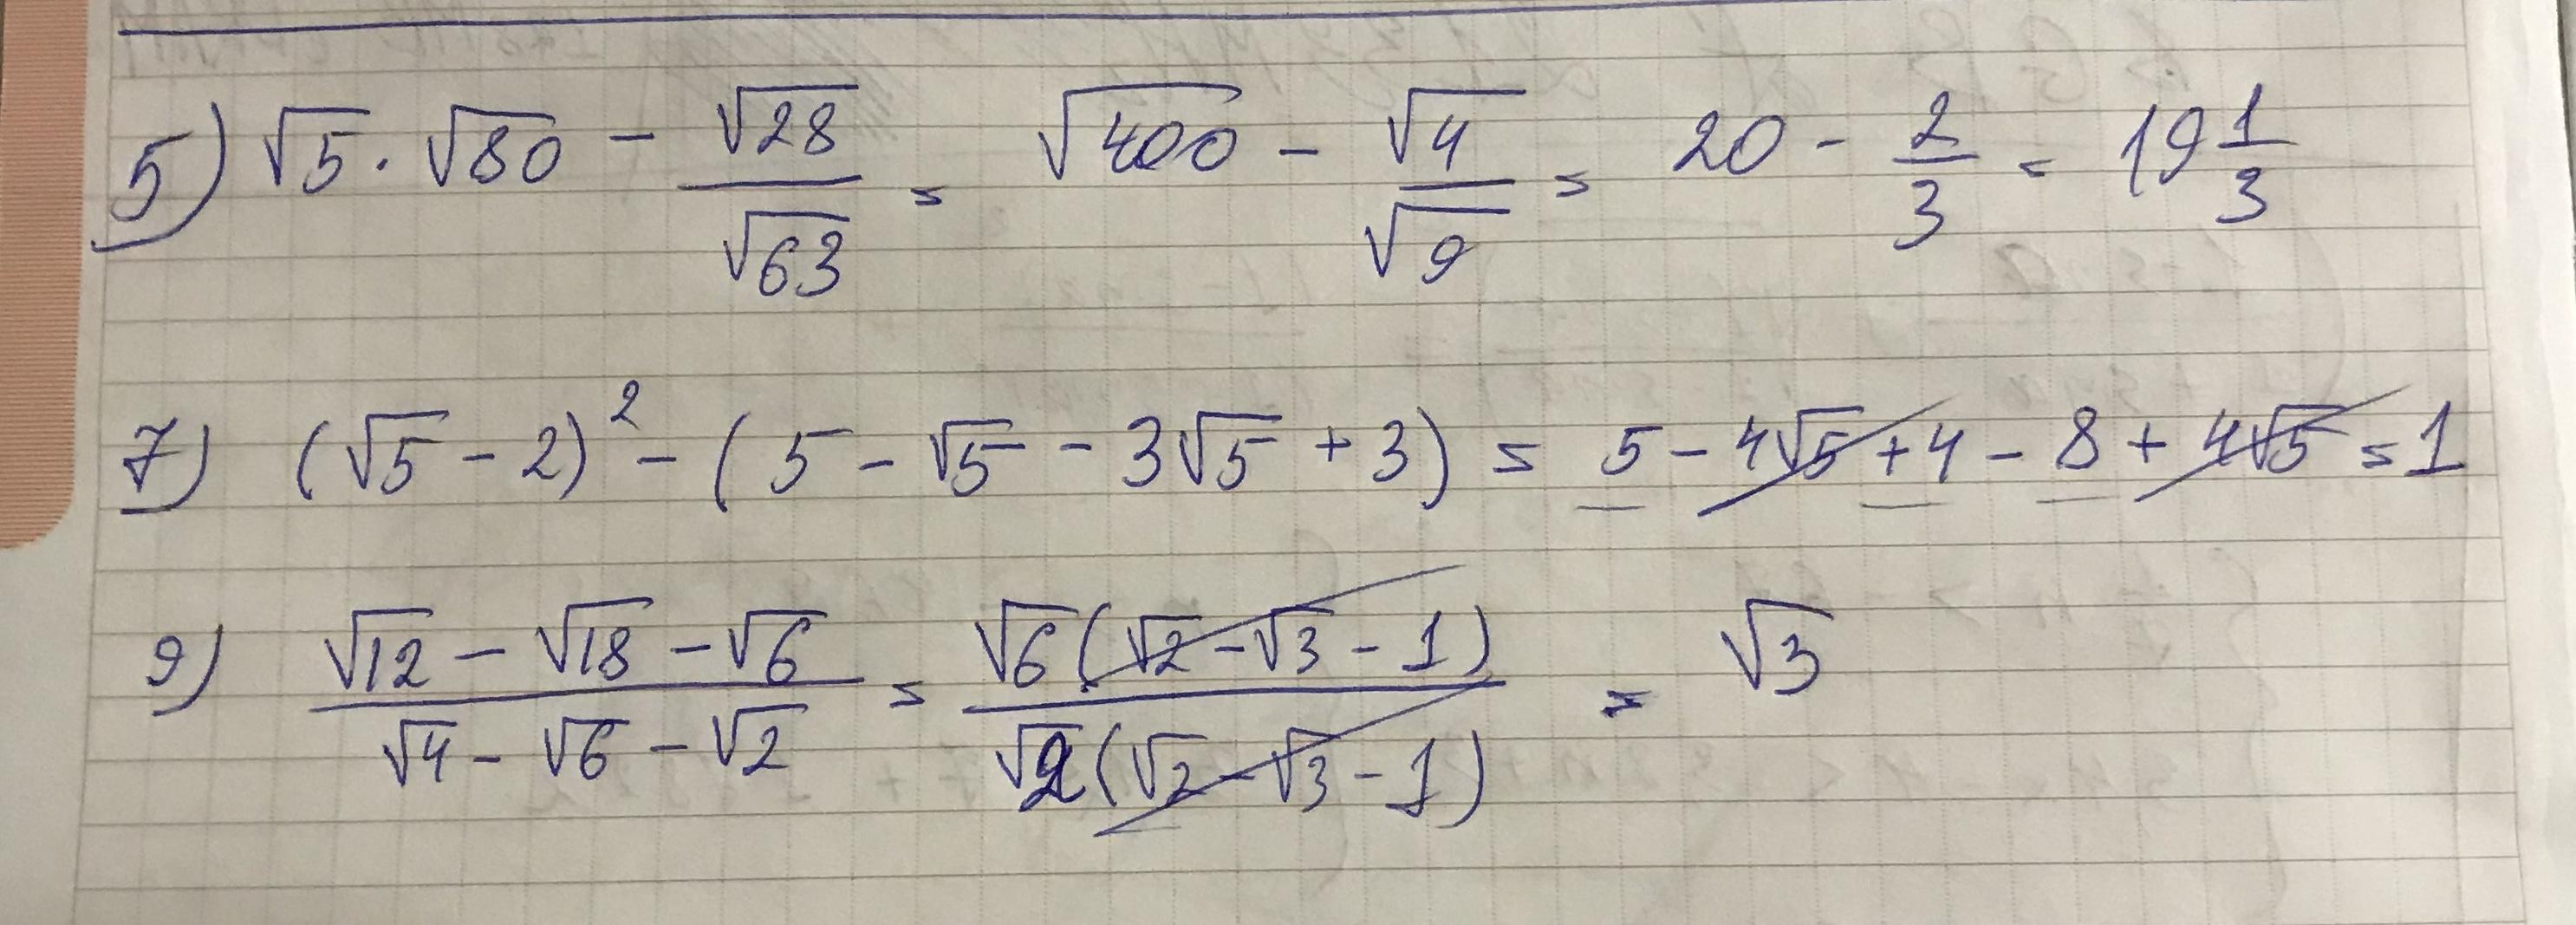 5) √5 · √80 - √28/√63 = √400 - √4/√9 = 20 - 2/3 = 19 1/3
7) (√5 - 2)² - (5 - √5 - 3√5 + 3) = 5 - 4√5 + 4 - 8 + 4√5 = 1
9) (√12 - √18 - √6)/(√4 - √6 - √2) = √6(√2 - √3 - 1)/√2(√2 - √3 - 1) = √3